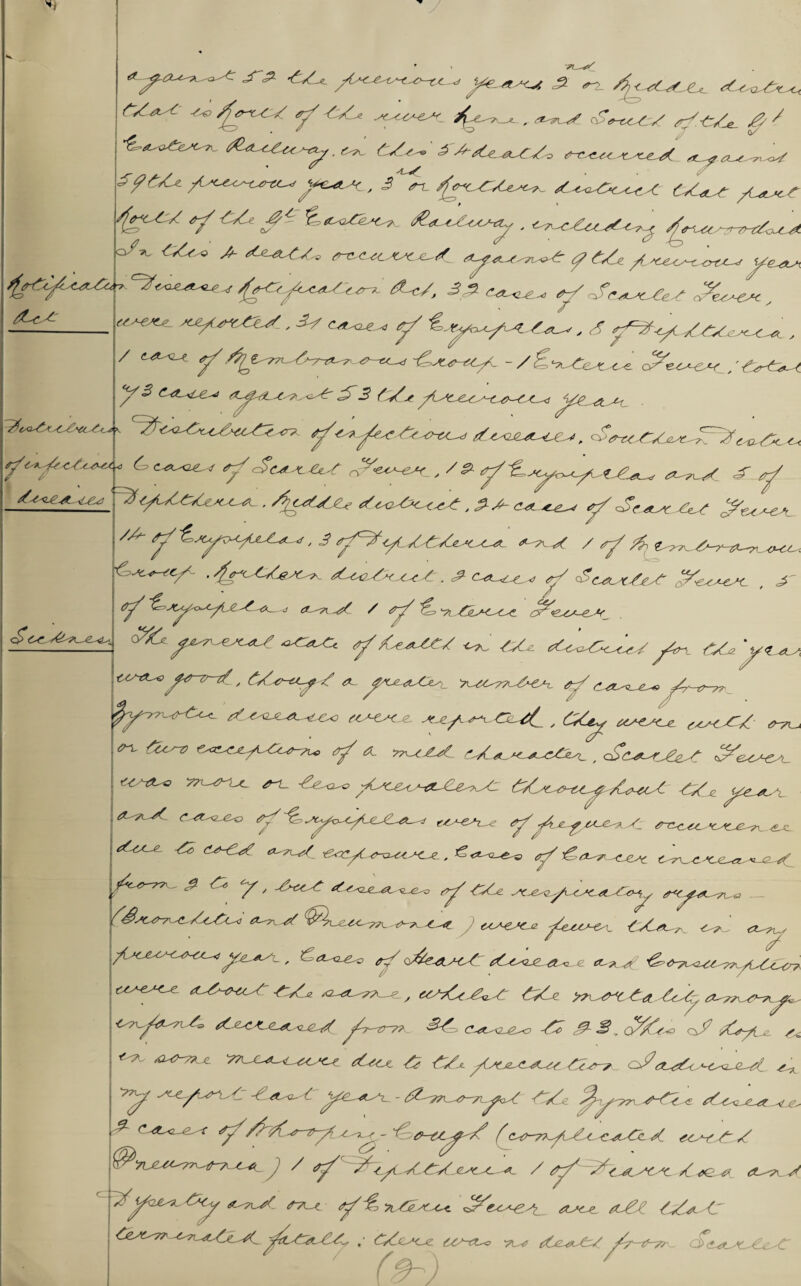 against 52 the previous years 2nd or Middle distri
that is North of the river Mene, and South of the Gt
Eastern Railway, in this 54 deaths occurred against
59 the previous year, 3rd or Northern district that part
North of the Gt Eastern Railway, including Norwoodsid
In this 4 deaths occurred against 9 the previous year
Notification Diseases Notification Act, 32 cases of Scarlet Fever,
Act
were reported, 31 cases of Erysipelas, 8 of Diphtheria,
1 case of Membranous Croup - 1 Enteric Fever, total
73 cases against 53 the previous year
Distribution Distribution of infectious diseases, Southern Distri
of infectious 6 cases of Scarlet Fever, 12 of Erysipelas and 5 of
diseases Diphtheria, Middle district, 24 cases of Scarlet Fever
14 of Erysipelas, 3 of Diphtheria and 1 of Membranous
Croup. Northern district. 2 cases of Scarlet Fever, 5
of Erysipelas and 1 of Enteric Fever.
Sickness The general state of health in the district for the year
was good, though a greater number of cases from
Zymotic diseases were reported, they were with one
or two exceptions of a mild character, Scarlet Fever
was more or less prevalent throughout the year
and cases of Erysipelas were of frequent occurrence
due to cold and exposure. Cases of Cancer increased
from 2 to 7, but diseases of the respiratory organs —
(Bronchitis and Pneumonia) were fewer than in any
previous year, Cases of Heart disease and Consumption
were about the same, whilst the mortality amongst
infants decreased from 36 cases to 23. This I hope is
in some measure due to the precaution I advised in
my report last year - Amongst the Zymotic diseases
2 cases of Whooping-Cough (complicated with
Pneumonia) 1 of Diphtheria 1 of Diarrhoea and
Dysentry and one of Enteric Fever are all that
terminated fatally ; there was no death from Scarlet
(2)